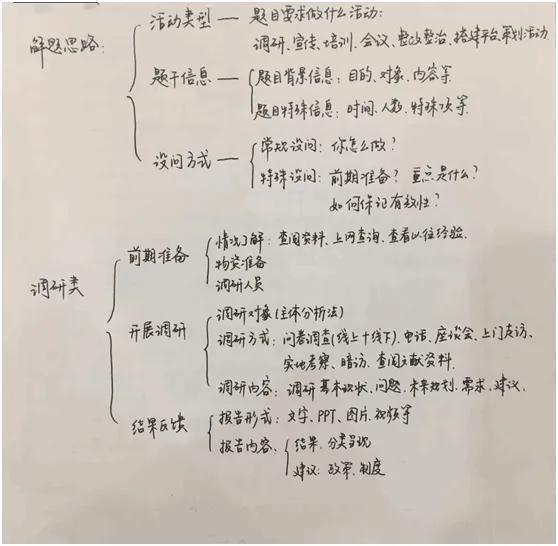 活动类型 — 题目要求做什么活动:
调研、宣传、培训、会议、整改整治、搭建平台、策划活动
解题思路:
题干信息 — 题目背景信息: 目的、对象、内容等
题目特殊信息: 时间、人数、特殊次等
设问方式 — 常规设问: 你怎么做?
特殊设问: 前期准备? 重点是什么?
如何保证有效性?
前期准备 情况了解: 查阅资料、上网查询、查看以往经验.
物资准备
调研人员
调研类
开展调研 调研对象(主体分析法)
调研方式: 问卷调查(线上+线下)、电话、座谈会、上门走访、
实地考察、暗访、查阅文献资料.
调研内容: 调研基本现状、问题、未来规划、需求、建议.
结果反馈 报告形式: 文字、PPT、图片、视频等
报告内容: 结果、分类呈现
建议: 政策、制度